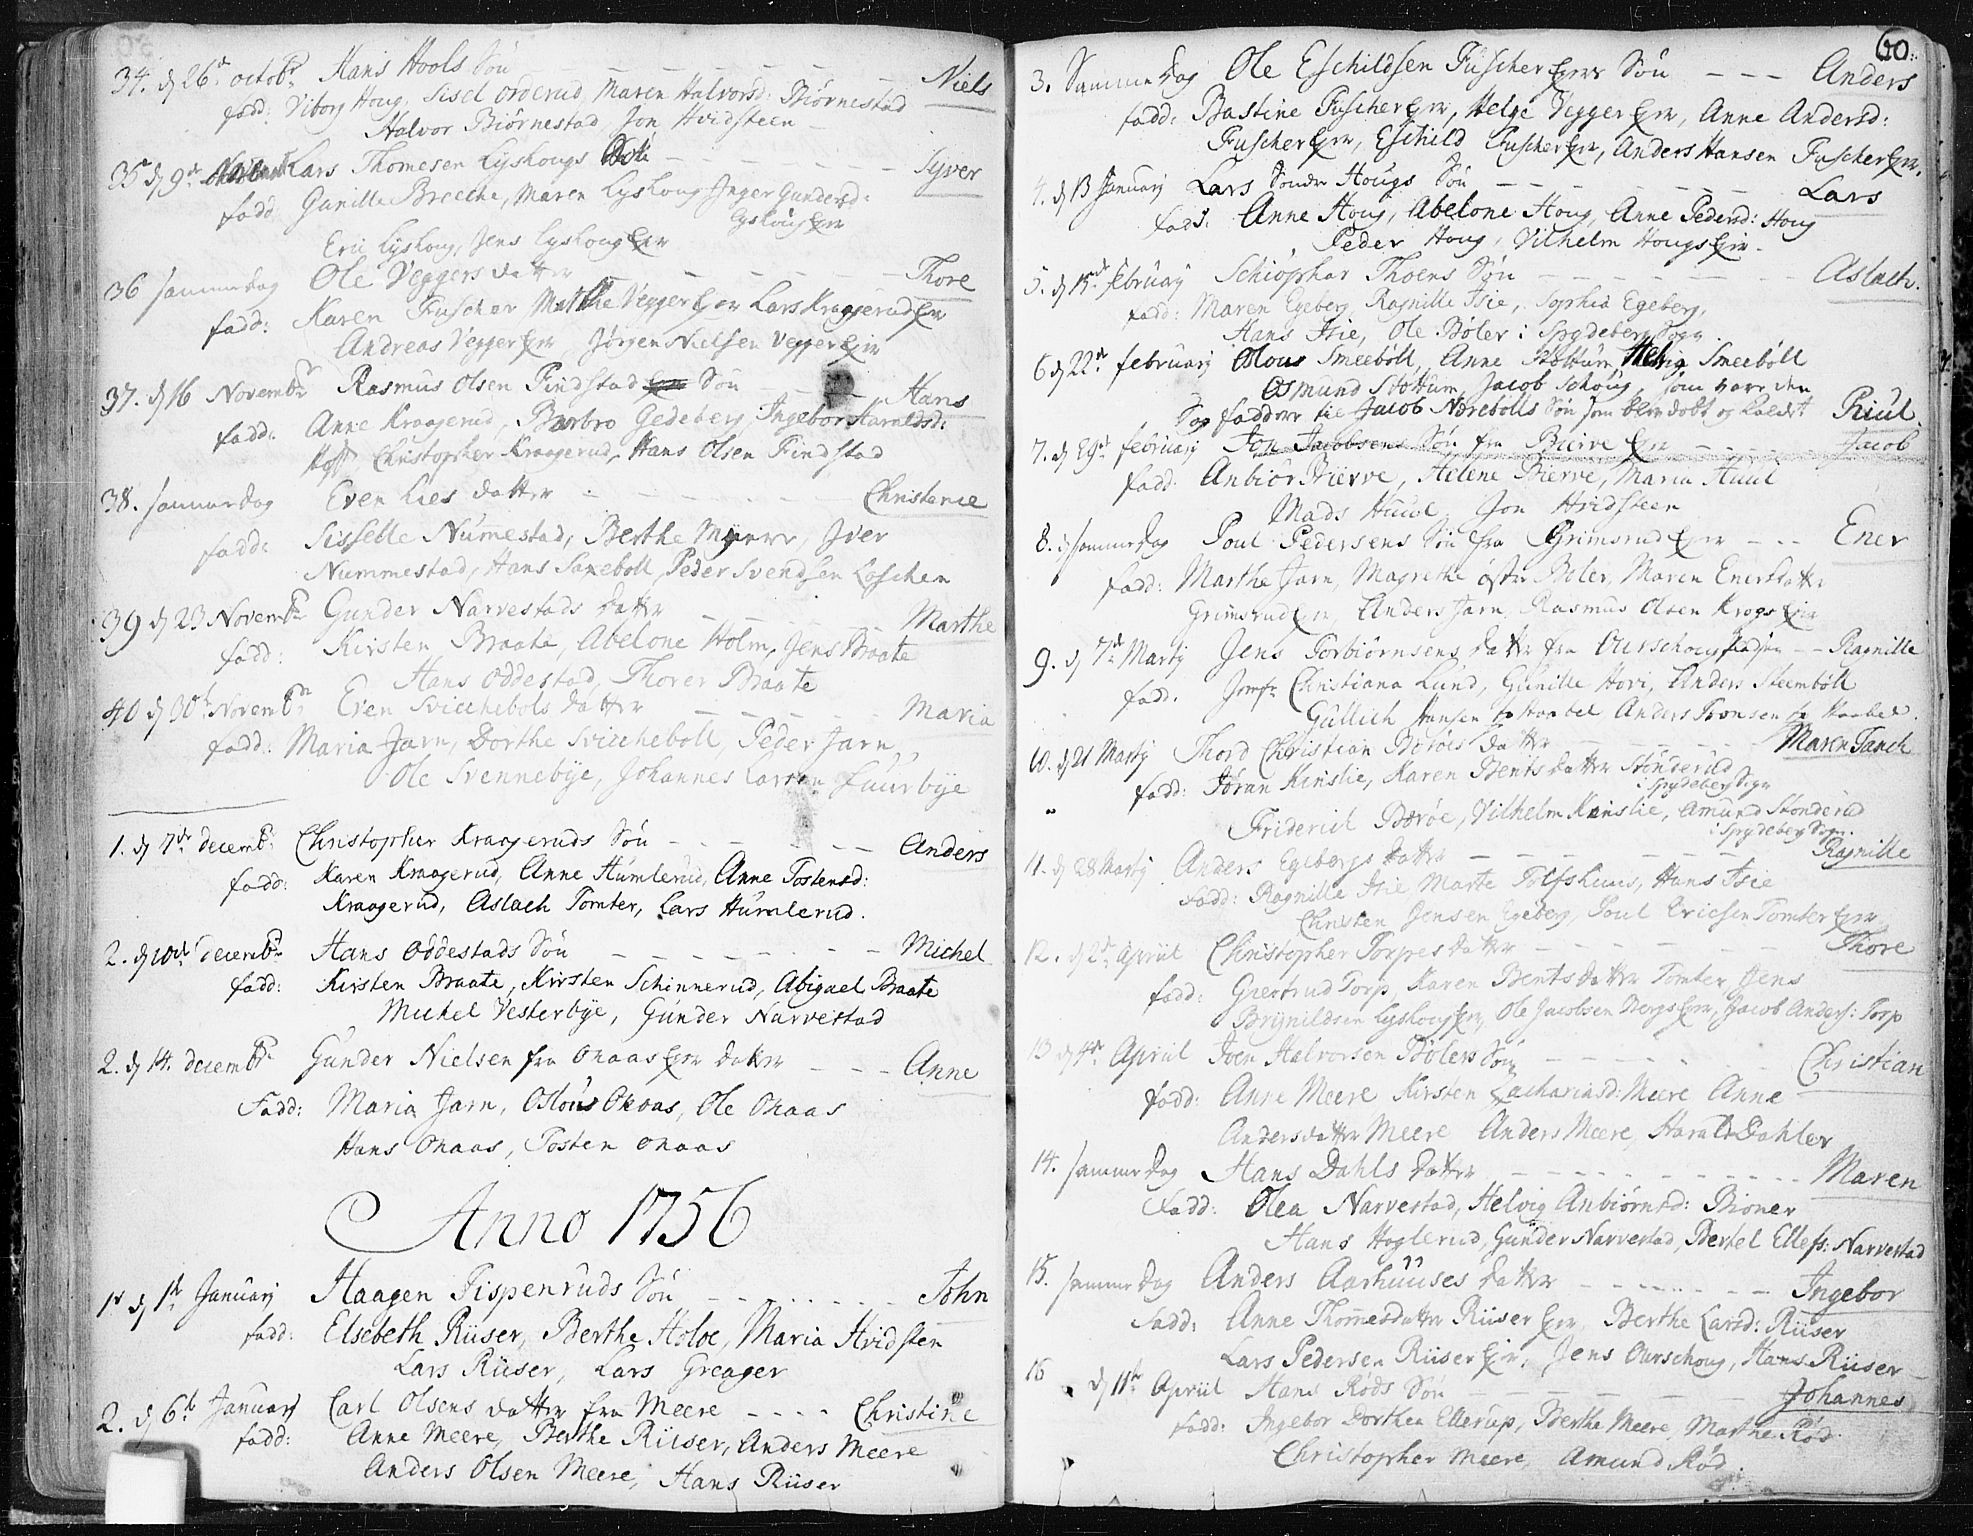 34. d 26de octobr Hans Hools Søn – – – Niels
fadd: Viborg Houg, Sisel Orderud, Maren Halvorsd: Biørnestad
Halvor Biørnestad, Jon Hvidsteen
35 d 9de Lars Thomesen Lyshougs – – – Syver
fadd Gunille Brecche, Maren Lyshoug Inger Gundersd:
Lyshoug Eyer
Eric Lyshoug, Jens Lyshoug Eyer
36 samme dag Ole Veggers datter – – – Thore
fadd: Karen Fuscher Marthe Vegger Eyer Lars Kraagerud Eyer
Andreas Vegger Eyer Jørgen Nielsen Vegger Eyer
37. d 16 Novembr Rasmus Olsen Findstad Søn – – Hans
fadd: Anne Kraagerud, Barbro Gedeberg Ingebor Harnelsd:
Hoff Christopher Kraagerud, Hans Olsen Findstad
38. samme dag Even Lies datter – – – Christence
fadd: Sisselle Nummestad, Berthe Myrer, Iver
Nummestad, Hans Saxeboll, Peder Svendsen Loschen
39 d 23 Novembr Gunder Narvestads datter – – – Marthe
fadd: Kirsten Braate, Abelone Holm, Jens Braate
Hans Oddestad, Thorer Braate
40 d 30te Novembr Even Svicchebols datter – – – Maria
fadd: Maria Jarn, Dorthe Svicheboll, Peder Jarn,
Ole Svennebye, Johannes Larsen Fuurbye
1. d 7de decembr: Christopher Kraageruds Søn – – – Anders
fadd: Karen Kraagerud, Anne Humlerud, Anne Tostensd:
Kraagerud, Aslach Tomter, Lars Humlerud.
2. d 10de decembr Hans Oddestads Søn – – – Michel
fadd: Kirsten Braate, Kirsten Schinnerud, Abigael Braate
Michel Vesterbye, Gunder Narvestad
2. d 14. decembr Gunder Nielsen fra Onaas Eyer datter – – – Anne
Fadd: Maria Jarn, Oslous Onaas, Ole Onaas
Hans Onaas, Tosten Onaas
Anno 1756
1 d 1te Januarj Haagen Tispenruds Søn – – – John
fadd: Elsebeth Riiser, Berthe Holoe, Maria Hvidsten
Lars Riiser, Lars Greager
2. d 6te Januarj Carl Olsens datter fra Meere – – – – Christine
fadd: Anne Meere, Berthe Riiser, Anders Meere
Anders Olsen Meere, Hans Riiser
60.
3. Samme dag Ole Eschildsen Fuscher Eyer Søn – – – Anders
fadd: Bastine Fuscher Eyer, Helge Vegger Eyer, Anne Andersd:
Fuscher Eyer, Eschild Fuscher Eyer, Anders Hansen Fuscher Eyer.
4. d 13 Januarj Lars Søndre Hougs Søn – – – Lars
fadd. Anne Houg, Abelone Houg, Anne Pedersd: Houg
Peder Houg, Vilhelm Hougs Eyer.
5. d 15de februarj Schiøphar Thoens Søn – – – Aslach.
fadd: Maren Egeberg Ragnille Isie, Sophia Egeberg,
Hans Isie, Ole Bøler i Spydeberg Sogn
6 d 22de februarj Oslous Smeebøll, Anne Støttum, Helvig Smeebøll
Osmund Støttum, Jacob Schoug, som vare den
Søn faddere til Jacob Nærebølls Søn som blev døbt og kaldet Poul.
7. d 29de februarj Jon Jacobsens Søn fra Bierve Eyer – – Jacob
fadd. Anbior Bierve, Helene Bierve, Maria Huul
Mads Huul, Jon Hvidsteen
8. samme dag Poul Pedersens Søn fra Grimsrud Eyer – – – Ener
fadd: Marthe Jarn, Magrethe øster Bøler, Maren Enersdatter
Grimsrud Eyer, Anders Jarn, Rasmus Olsen Krogs Eyer
9. d 7de Martj Jens Torbiørnsens datter fra Ourschoug – – Ragnille
fadd. Jomfr Christiana Lund, Gunille Hovi, Anders Steembøll
Gullich Hansen Haabel Anders Tronsen Haabel.
10. d 21 Martj Thord Christian Børøes datter – – – Maren Tanch
fadd: Jøran Kinslie, Karen Bentsdatter Stønderud
i Spydeberg Sogn
Friderich Børøe, Vilhelm Kinslie, Amund Stønderud
i Spydeberg Sogn.
11. d 28 Martj Anders Egebergs datter – – – Ragnille
Fadd: Ragnille Isie Marte Tolfshuus, Hans Isie
Christen Jensen Egeberg, Poul Ericsen Tomter Eyer
12. d 2de Apriil Christopher Torpes datter – – – Thore
fadd: Giertrud Torp, Karen Bentsdatter Tomter Jens
Brynildsen Lyshoug Eyer, Ole Jacobsen Bergs Eyer, Jacob Anders: Torp
13 d 4de Apriil Joen Halvorsen Bølers Søn – – – Christian
fadd: Anne Meere Kirsten Zachariasd: Meere Anne
Andersdatter Meere Anders Meere, Harald Dahler
14. samme dag Hans Dahls datter – – – Maren
Fadd: Olea Narvestad, Helvig Anbiørnsd: Bioner
Hans Hoglerud, Gunder Narvestad, Bertel Ellefs: Narvestad
15. samme dag Anders Aarhuuses datter – – – Ingebor
Fadd: Anne Thomesdatter Riiser Eyer Berthe Larsd: Riiser
Lars Pedersen Riiser Eyer, Jens Ourschoug, Hans Riiser
16 d 11te Apriil Hans Røds Søn – – – Johannes
Fadd: Ingebor Dorthea Ellerup, Berthe Meere, Marthe Rød.
Christopher Meere, Amund Rød.